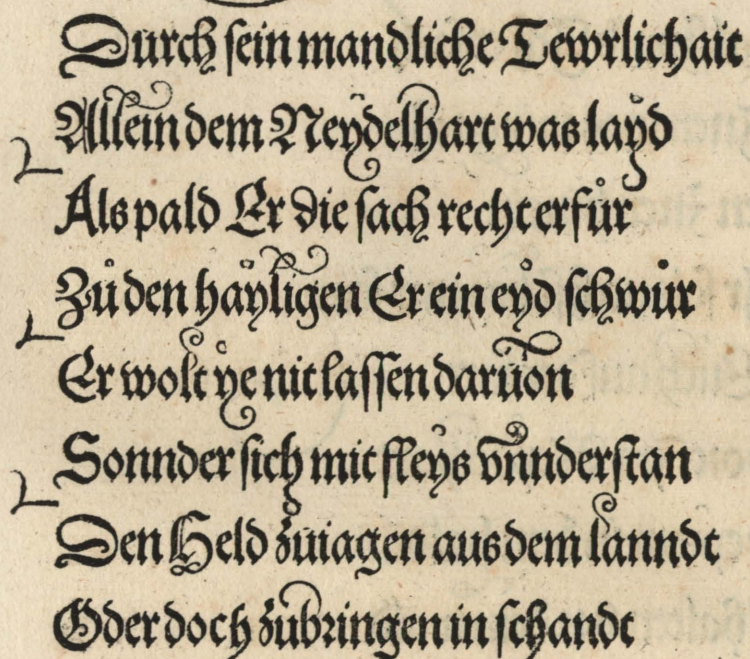 Durch sein mandliche Tewrlichait
Allein dem Neydelhart was layd
Als pald Er die sach recht erfůr
Zů den hayligen Er ein eyd schwůr
Er wolt ye nit lassen daruon
Sonnder sich mit fleys vnnderstan
Den Held zuiagen aus dem lanndt
Oder doch zůbringen in schandt